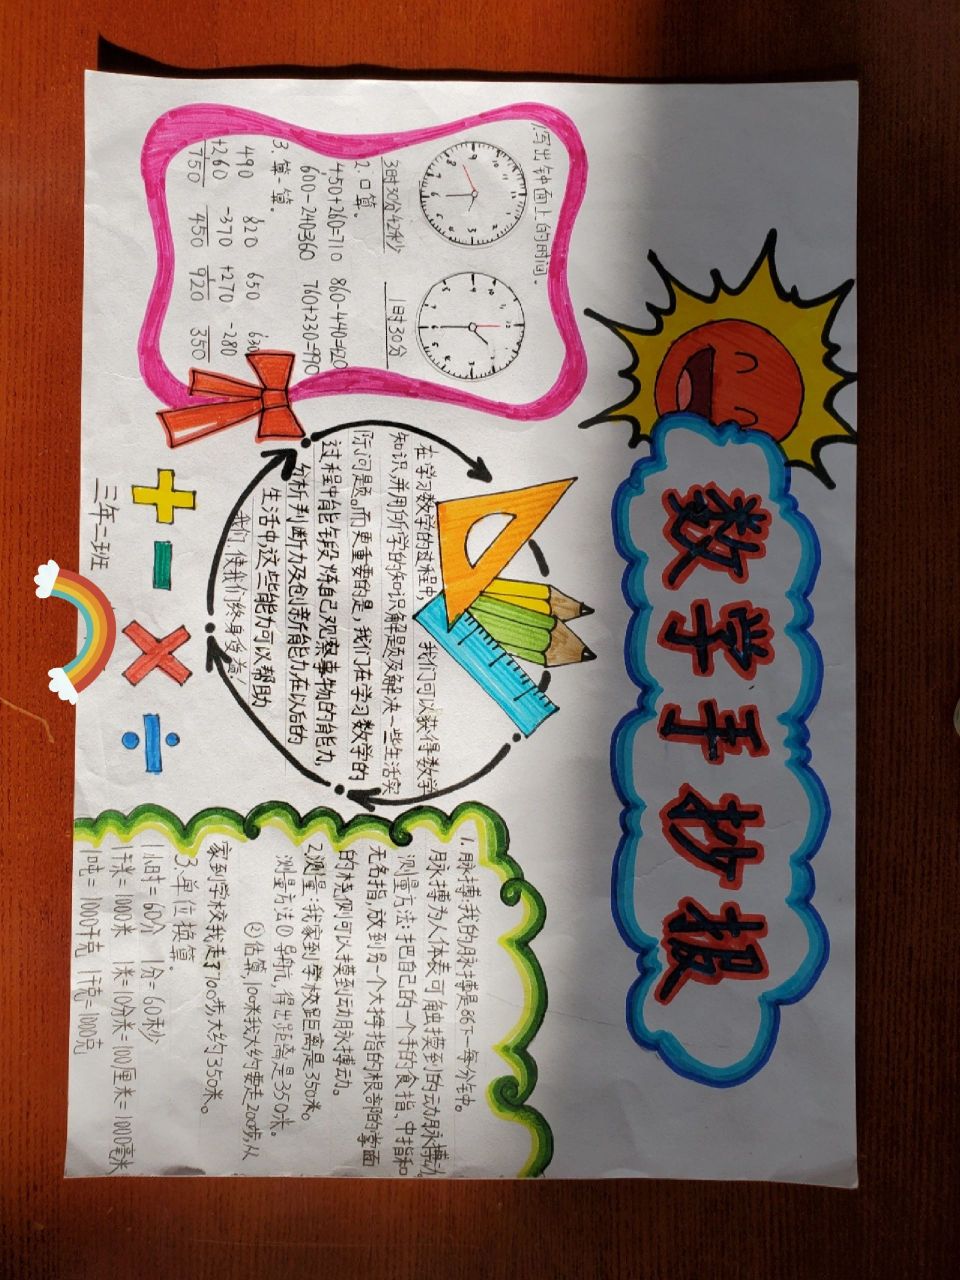 数学手抄报
1.写出钟面上的时间.
3时30分42秒
1时30分
2.口算.
450+260=710 860-440=420
600-240=360 760+230=990
3.算一算.
490 820 650 630
+260 -370 +270 -280
750 450 920 350
在学习数学的过程中,我们可以获得数学
知识,并用所学的知识解题及解决一些生活实
际问题。而更重要的是,我们在学习数学的
过程中能锻炼自己观察事物的能力,
分析判断力及创新能力,在以后的
生活中这些能力可以帮助
我们,使我们终身受益!
三年二班
1.脉搏:我的脉搏是86下一每分钟。
脉搏为人体表可触摸到的动脉搏动.
测量方法:把自己的一个手的食指、中指和
无名指,放到另一个大拇指的根部的掌面
的桡侧可以摸到动脉搏动。
2.测量:我家到学校距离是350米。
测量方法①导航,得出距离是350米。
②估算,100米我大约要走200步,从
家到学校我走了700步,大约350米。
3.单位换算。
1小时=60分 1分=60秒
1千米=1000米 1米=10分米=100厘米=1000毫米
1吨=1000千克 1千克=1000克